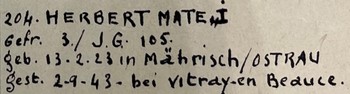 204. HERBERT MATEJ
Gefr. 3./ J.G. 105.
geb. 13-2.23 in Mährisch/OSTRAU
gest. 2-9-43- bei Vitray-en Beauce.